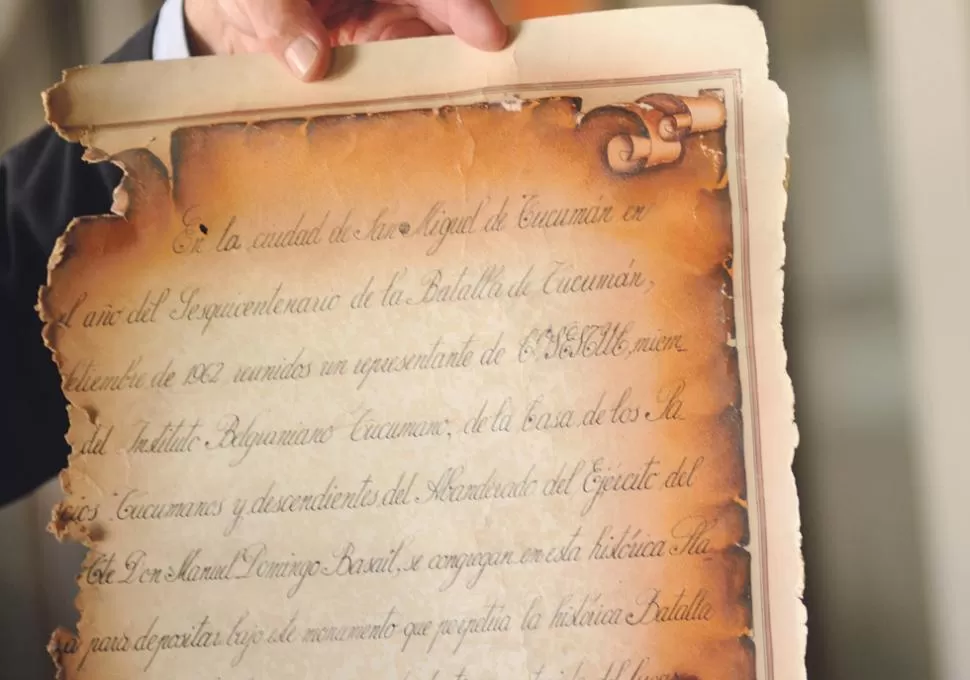 En la ciudad de San Miguel de Tucumán en
el año del Sesquicentenario de la Batalla de Tucumán,
setiembre de 1962 reunidos un representante de miem_
del Instituto Belgraniano Tucumano, de la Casa de los Pa_
Tucumanos y descendientes del Abanderado del Ejército del
Cte Don Manuel Domingo Basail, se congregan en esta histórica Pla_
za para depositar bajo este monumento que perpetúa la histórica Batalla